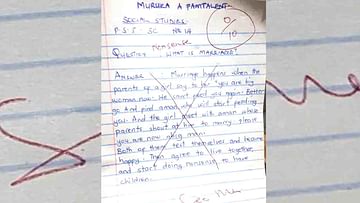 MURUKA A PANTALENT
SOCIAL STUDIES
0/10
Nonsense
QUESTION WHAT IS MARRIAGE?
ANSWER Marriage happens when the
parents of a girl say to her "you are big
woman now. We can't feed you again. Better
go and find aman who will start feeding
you. And the girl meet with aman whose
parents shout at him to marry please
you are now a big man.
Both of them test themselves and become
happy. Then agree to live together,
and start doing nonsense to have
children.